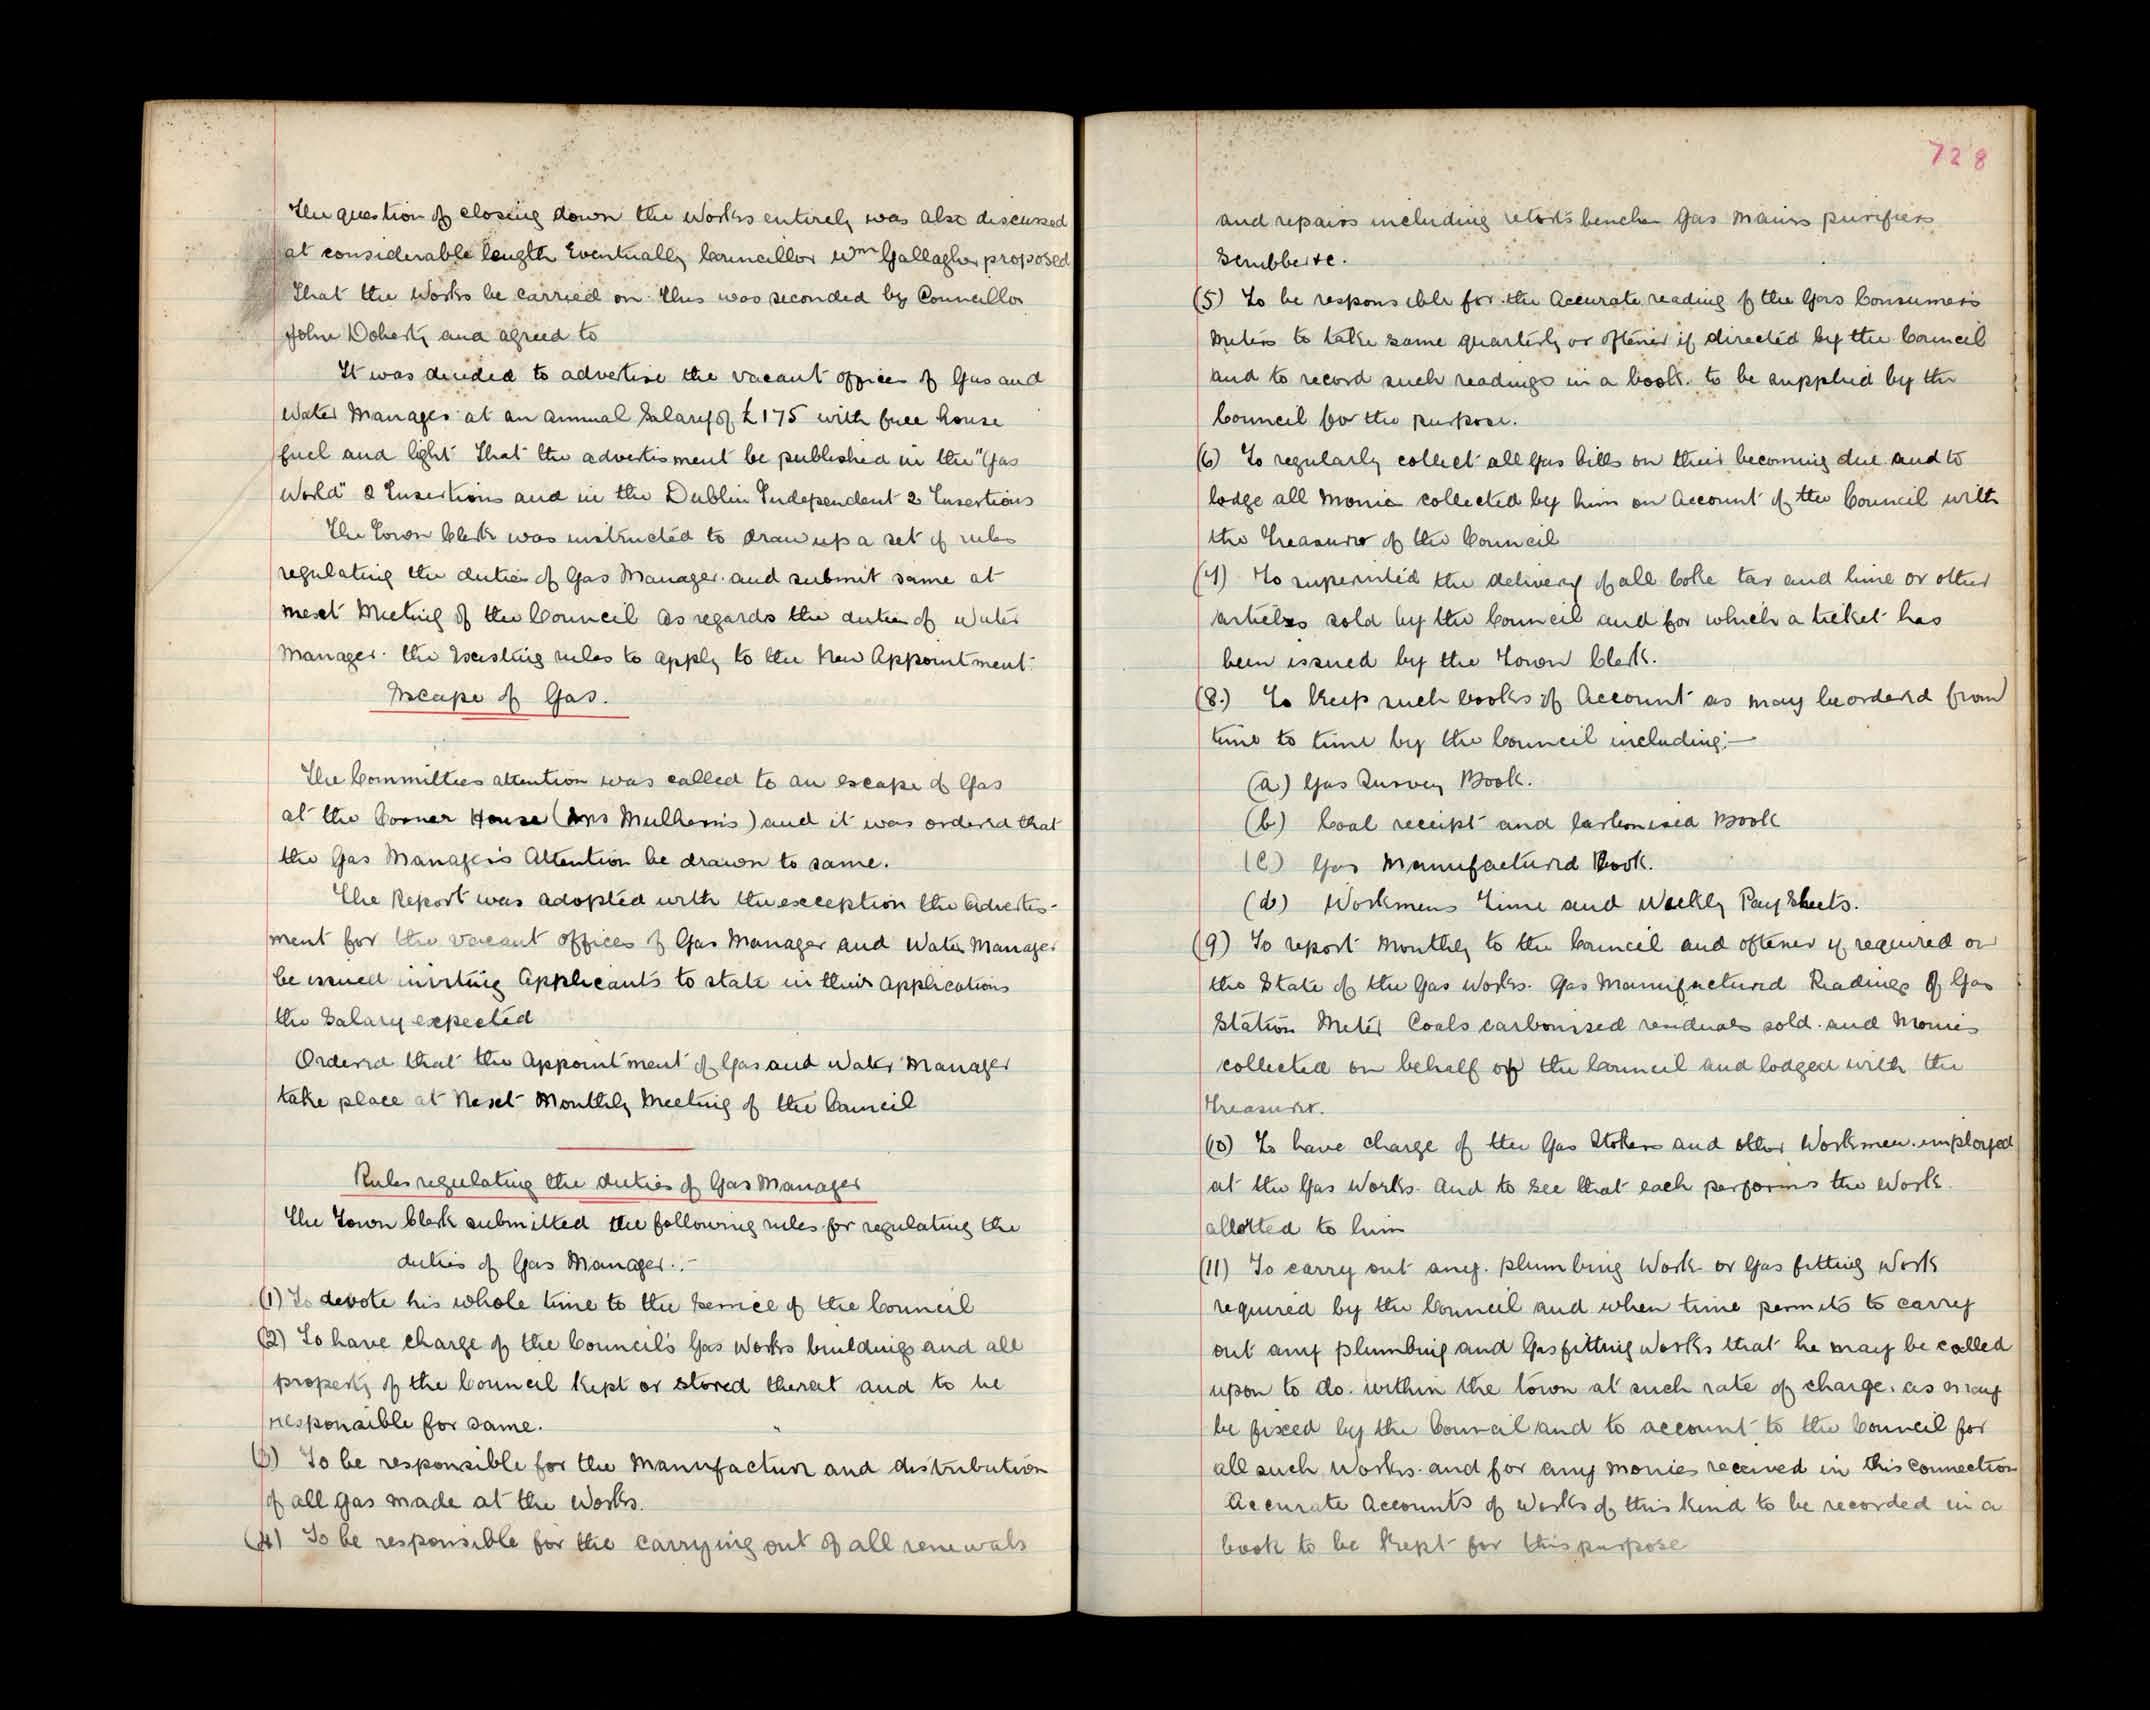 The question of closing down the Works entirely was also discussed
at considerable length Eventually Councillor Wm Gallagher proposed
That the Works be carried on. This was seconded by Councillor
John Doherty and agreed to
It was decided to advertise the vacant offices of Gas and
Water Manager at an annual Salary of £175 with free house
fuel and light That the advertisment be published in the "Gas
World" 2 Insertions and in the Dublin Independent 2 Insertions
The Town Clerk was instructed to draw up a set of rules
regulating the duties of Gas Manager. and submit same at
next Meeting of the Council As regards the duties of Water
Manager. the Existing rules to apply to the New Appointment.
Escape of Gas.
The Committees attention was called to an escape of Gas
at the Corner House (Mrs Mulherns) and it was ordered that
the Gas Manager's Attention be drawn to same.
The Report was adopted with the exception the Advertis-
ment for the vacant offices of Gas Manager and Water Manager
be issued inviting Applicants to state in their Applications
the Salary expected
Ordered that the Appointment of Gas and Water Manager
take place at Next Monthly Meeting of the Council
Rules regulating the duties of Gas Manager
The Town Clerk submitted the following rules for regulating the
duties of Gas Manager:-
(1) To devote his whole time to the Service of the Council
(2) To have charge of the Council's Gas Works buildings and all
property of the Council kept or stored thereat and to be
responsible for same.
(3) To be responsible for the Manufacture and distribution
of all gas made at the Works.
(4) To be responsible for the carrying out of all renewals
728
and repairs including retorts benches Gas Mains purifiers
Scrubber &c.
(5) To be responsible for the Accurate reading of the Gas Consumers
Meters to take same quarterly or oftener if directed by the Council
and to record such readings in a book. to be supplied by the
Council for the purpose.
(6) To regularly collect all Gas bills on their becoming due and to
lodge all Monies collected by him on Account of the Council with
the Treasurer of the Council
(7) To superinted the delivery of all Coke tar and lime or other
articles sold by the Council and for which a ticket has
been issued by the Town Clerk.
(8.) To keep such books of Account as may be ordered from
time to time by the Council including:-
(a) Gas Survey Book.
(b) Coal receipt and Carbonised Book
(c) Gas Manufactured Book.
(d) Workmens Time and Weekly Pay Sheets.
(9) To report Monthly to the Council and oftener if required on
the State of the Gas Works. Gas Manufactured Readings of Gas
Station Meter Coals carbonised residuals sold. and Monies
collected on behalf of the Council and lodged with the
Treasurer.
(10) To have charge of the Gas Stokers and other Workmen. employed
at the Gas Works. And to see that each performs the Work.
allotted to him
(11) To carry out any. plumbing Work or Gas fitting Work
required by the Council and when time permits to carry
out any plumbing and Gasfitting Works that he may be called
upon to do. within the town at such rate of charge. as may
be fixed by the Council and to account to the Council for
all such Works. and for any monies received in this connection
Accurate Accounts of Works of this kind to be recorded in a
book to be kept for this purpose